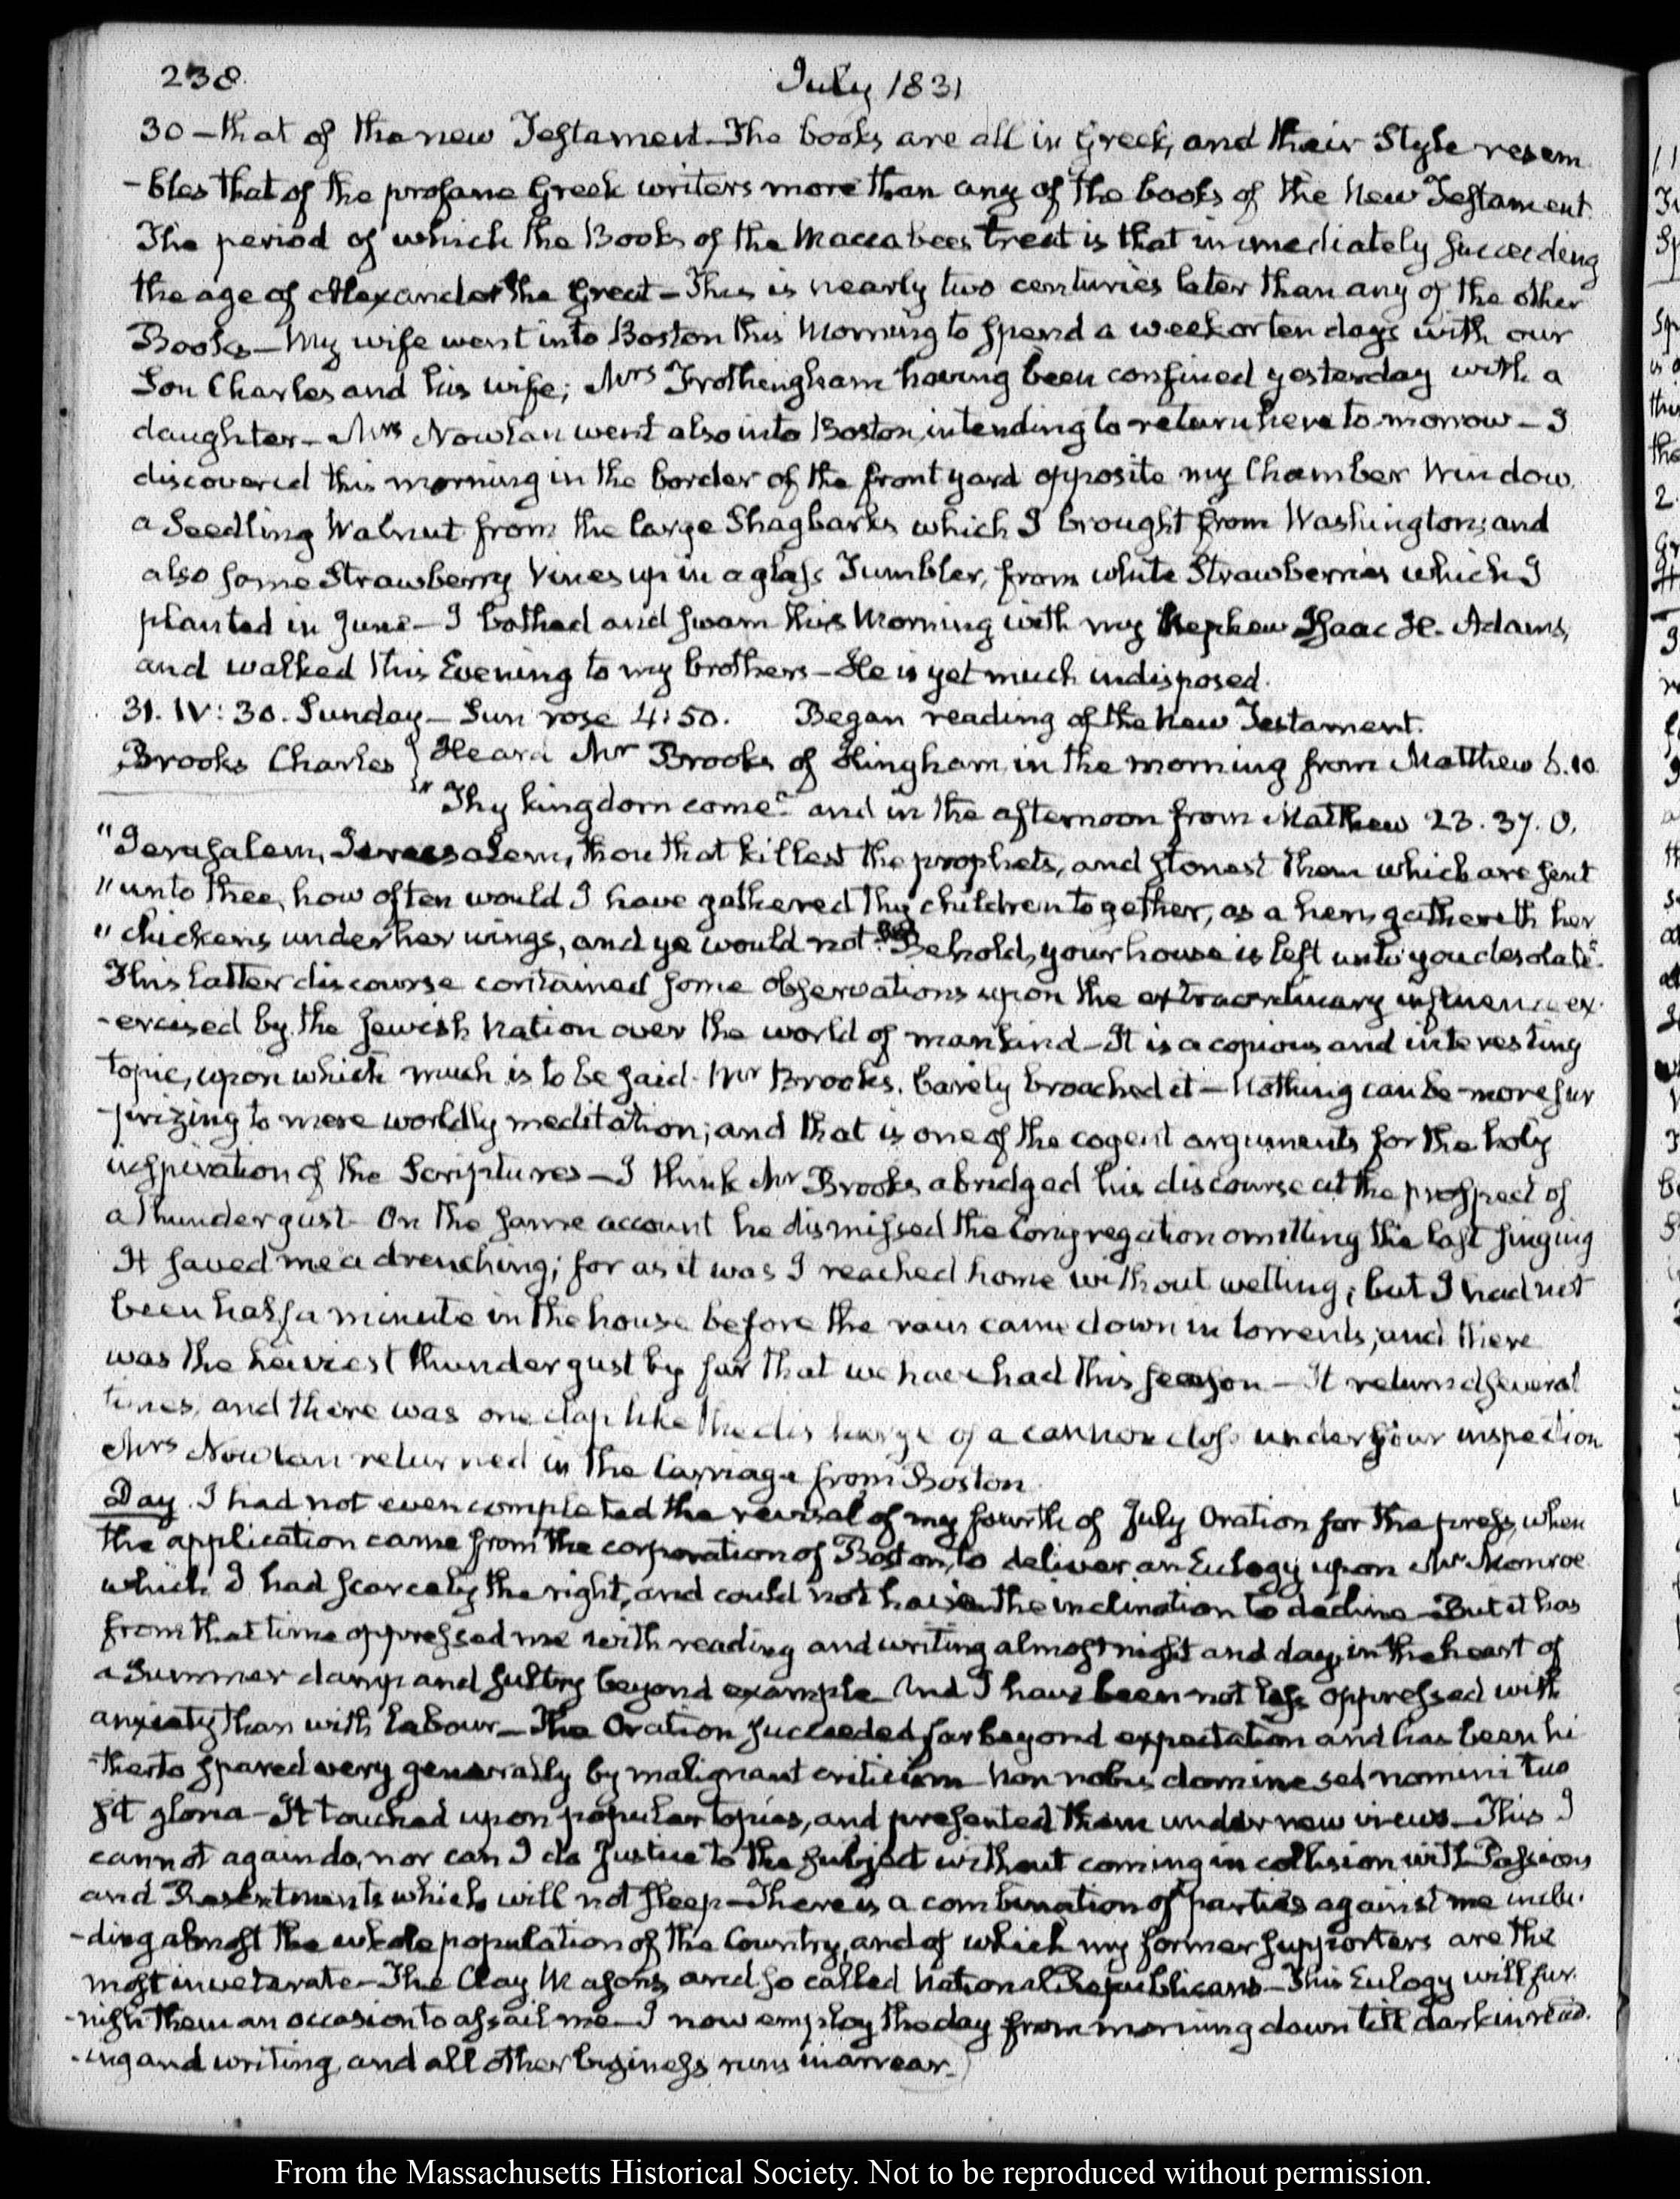 238
July 1831
30 – that of the new Testament – The books are all in Greek, and their Style resem
-bles that of the profane Greek writers more than any of the books of the New Testament.
The period of which the Books of the Maccabees treat is that immediately succeeding
the age of Alexander the Great – This is nearly two centuries later than any of the other
Books – My wife went into Boston this Morning to spend a week or ten days with our
Son Charles and his wife; Mrs Frothingham having been confined yesterday with a
daughter – Mrs Nowlan went also into Boston, intending to return here to-morrow – I
discovered this morning in the border of the front yard opposite my Chamber Window
a Seedling Walnut from the large Shagbarks which I brought from Washington; and
also some Strawberry Vines up in a glass Tumbler, from white Strawberries which I
planted in June – I bathed and swam this Morning with my Nephew Isaac H. Adams,
and walked this Evening to my brothers – He is yet much indisposed.
31. IV: 30. Sunday – Sun rose 4:50. Began reading of the New Testament.
Brooks Charles } Heard Mr Brooks of Hingham, in the morning from Matthew 6.10
"Thy kingdom come" and in the afternoon from Matthew 23. 37. O,
"Jerusalem, Jerusalem, thou that killest the prophets, and stonest them which are sent
"unto thee, how often would I have gathered thy children together, as a hen gathereth her
"chickens under her wings, and ye would not. Behold, your house is left unto you desolate".
This latter discourse contained some observations upon the extraordinary influence ex-
-ercised by the Jewish Nation over the world of mankind – It is a copious and interesting
topic, upon which much is to be said. Mr Brooks barely broached it – Nothing can be more sur
-prizing to mere worldly meditation; and that is one of the cogent arguments for the holy
inspiration of the Scriptures – I think Mr Brooks abridged his discourse at the prospect of
a thunder gust – On the same account he dismissed the Congregation omitting the last singing
It saved me a drenching; for as it was I reached home without wetting; but I had not
been half a minute in the house before the rain came down in torrents; and there
was the heaviest thunder gust by far that we have had this season – It returned several
times, and there was one clap like the discharge of a cannon close under your inspection
Mrs Nowlan returned in the Carriage from Boston.
Day. I had not even completed the revisal of my fourth of July Oration for the press, when
the application came from the corporation of Boston, to deliver an Eulogy upon Mr Monroe
which I had scarcely the right, and could not have the inclination to decline – But it has
from that time oppressed me with reading and writing almost night and day, in the heart of
a Summer damp and sultry beyond example And I have been not less oppressed with
anxiety than with labour – The Oration succeeded far beyond expectation and has been hi
-therto spared very generally by malignant criticism – Non nobis domine sed nomini tuo
sit gloria – It touched upon popular topics, and presented them under new views – This I
cannot again do, nor can I do Justice to the subject without coming in collision with Passions
and Resentments which will not sleep – There is a combination of parties against me inclu-
-ding almost the whole population of the Country, and of which my former supporters are the
most inveterate – The Clay Masons, and so called National Republicans – This Eulogy will fur-
-nish them an occasion to assail me – I now employ the day from morning dawn till dark in read-
-ing and writing, and all other business runs in arrear.
From the Massachusetts Historical Society. Not to be reproduced without permission.